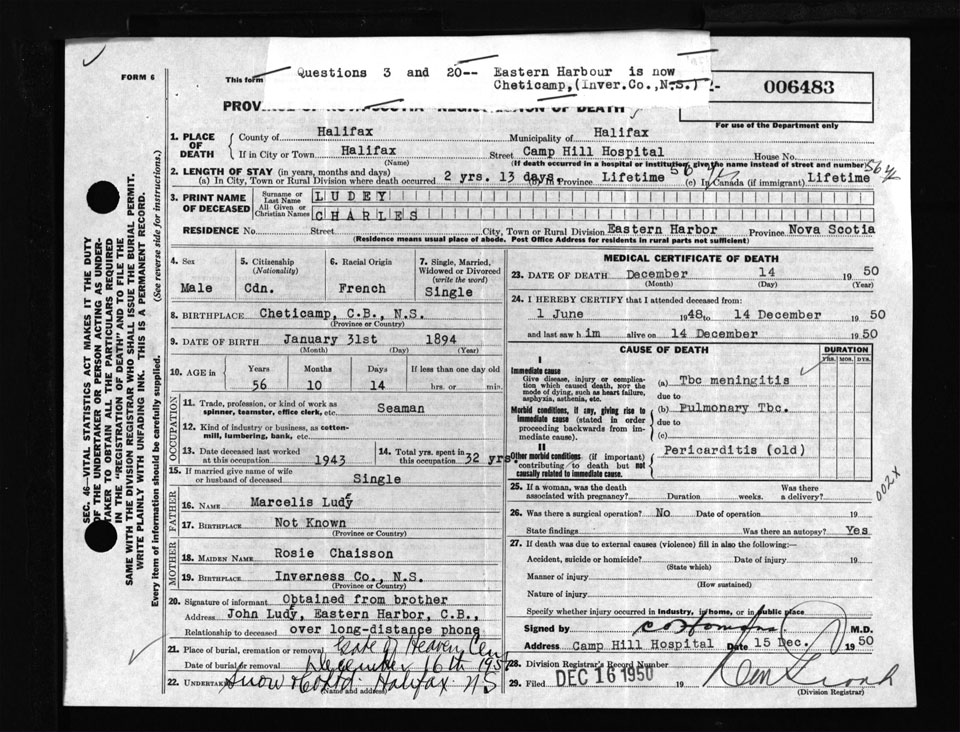 FORM 6
This form
Questions 3 and 20-- Eastern Harbour is now
Cheticamp,(Inver.Co.,N.S.)
006483
For use of the Department only
1. PLACE OF DEATH
County of Halifax Municipality of Halifax
If in City or Town Halifax Street Camp Hill Hospital House No.
(Name) (If death occurred in a hospital or institution, give the name instead of street and number)
2. LENGTH OF STAY (in years, months and days)
(a) In City, Town or Rural Division where death occurred 2 yrs. 13 days. (b) In Province Lifetime (c) In Canada (if immigrant) Lifetime
3. PRINT NAME OF DECEASED
Surname or Last Name LUDEY
All Given or Christian Names CHARLES
RESIDENCE No. Street City, Town or Rural Division Eastern Harbor Province Nova Scotia
(Residence means usual place of abode. Post Office Address for residents in rural parts not sufficient)
4. Sex Male
5. Citizenship (Nationality) Cdn.
6. Racial Origin French
7. Single, Married, Widowed or Divorced (write the word) Single
8. BIRTHPLACE Cheticamp, C.B., N.S.
(Province or Country)
9. DATE OF BIRTH January 31st 1894
(Month) (Day) (Year)
10. AGE in Years Months Days If less than one day old
56 10 14 hrs. or min.
OCCUPATION
11. Trade, profession, or kind of work as spinner, teamster, office clerk, etc. Seaman
12. Kind of industry or business, as cotton-mill, lumbering, bank, etc.
13. Date deceased last worked at this occupation 1943
14. Total yrs. spent in this occupation 32 yrs.
15. If married give name of wife or husband of deceased Single
FATHER
16. NAME Marcelis Ludy
17. BIRTHPLACE Not Known
(Province or Country)
MOTHER
18. MAIDEN NAME Rosie Chaisson
19. BIRTHPLACE Inverness Co., N.S.
(Province or Country)
20. Signature of informant Obtained from brother
Address John Ludy, Eastern Harbor, C.B.,
Relationship to deceased over long-distance phone
21. Place of burial, cremation or removal Gate of Heaven Cem
Date of burial or removal December 16th 1950
22. Undertaker Snow & Co Ltd. Halifax N S
(Name and address)
MEDICAL CERTIFICATE OF DEATH
23. DATE OF DEATH December 14 1950
(Month) (Day) (Year)
24. I HEREBY CERTIFY that I attended deceased from:
1 June 1948 to 14 December 1950
and last saw him alive on 14 December 1950
CAUSE OF DEATH DURATION
YRS. MOS. DYS.
I
Immediate cause
Give disease, injury or complication which caused death, NOR the mode of dying, such as heart failure, asphyxia, asthenia, etc.
(a) Tbc meningitis
due to
Morbid conditions, if any, giving rise to immediate cause (stated in order proceeding backwards from immediate cause).
(b) Pulmonary Tbc.
due to
(c)
II
Other morbid conditions (if important) contributing to death but not causally related to immediate cause.
Pericarditis (old)
002X
25. If a woman, was the death associated with pregnancy? Duration weeks. Was there a delivery?
26. Was there a surgical operation? No Date of operation 19
State findings Was there an autopsy? Yes
27. If death was due to external causes (violence) fill in also the following:—
Accident, suicide or homicide? Date of injury 19
(State which)
Manner of injury
(How sustained)
Nature of injury
Specify whether injury occurred in industry, in home, or in public place
Signed by M.D.
Address Camp Hill Hospital Date 15 Dec. 1950
28. Division Registrar's Record Number
29. Filed DEC 16 1950 19
(Division Registrar)
SEC. 46—VITAL STATISTICS ACT MAKES IT THE DUTY
OF THE UNDERTAKER OR PERSON ACTING AS UNDER-
TAKER TO OBTAIN ALL THE PARTICULARS REQUIRED
IN THE "REGISTRATION OF DEATH" AND TO FILE THE
SAME WITH THE DIVISION REGISTRAR WHO SHALL ISSUE THE BURIAL PERMIT.
WRITE PLAINLY WITH UNFADING INK. THIS IS A PERMANENT RECORD.
Every item of information should be carefully supplied. (See reverse side for instructions.)